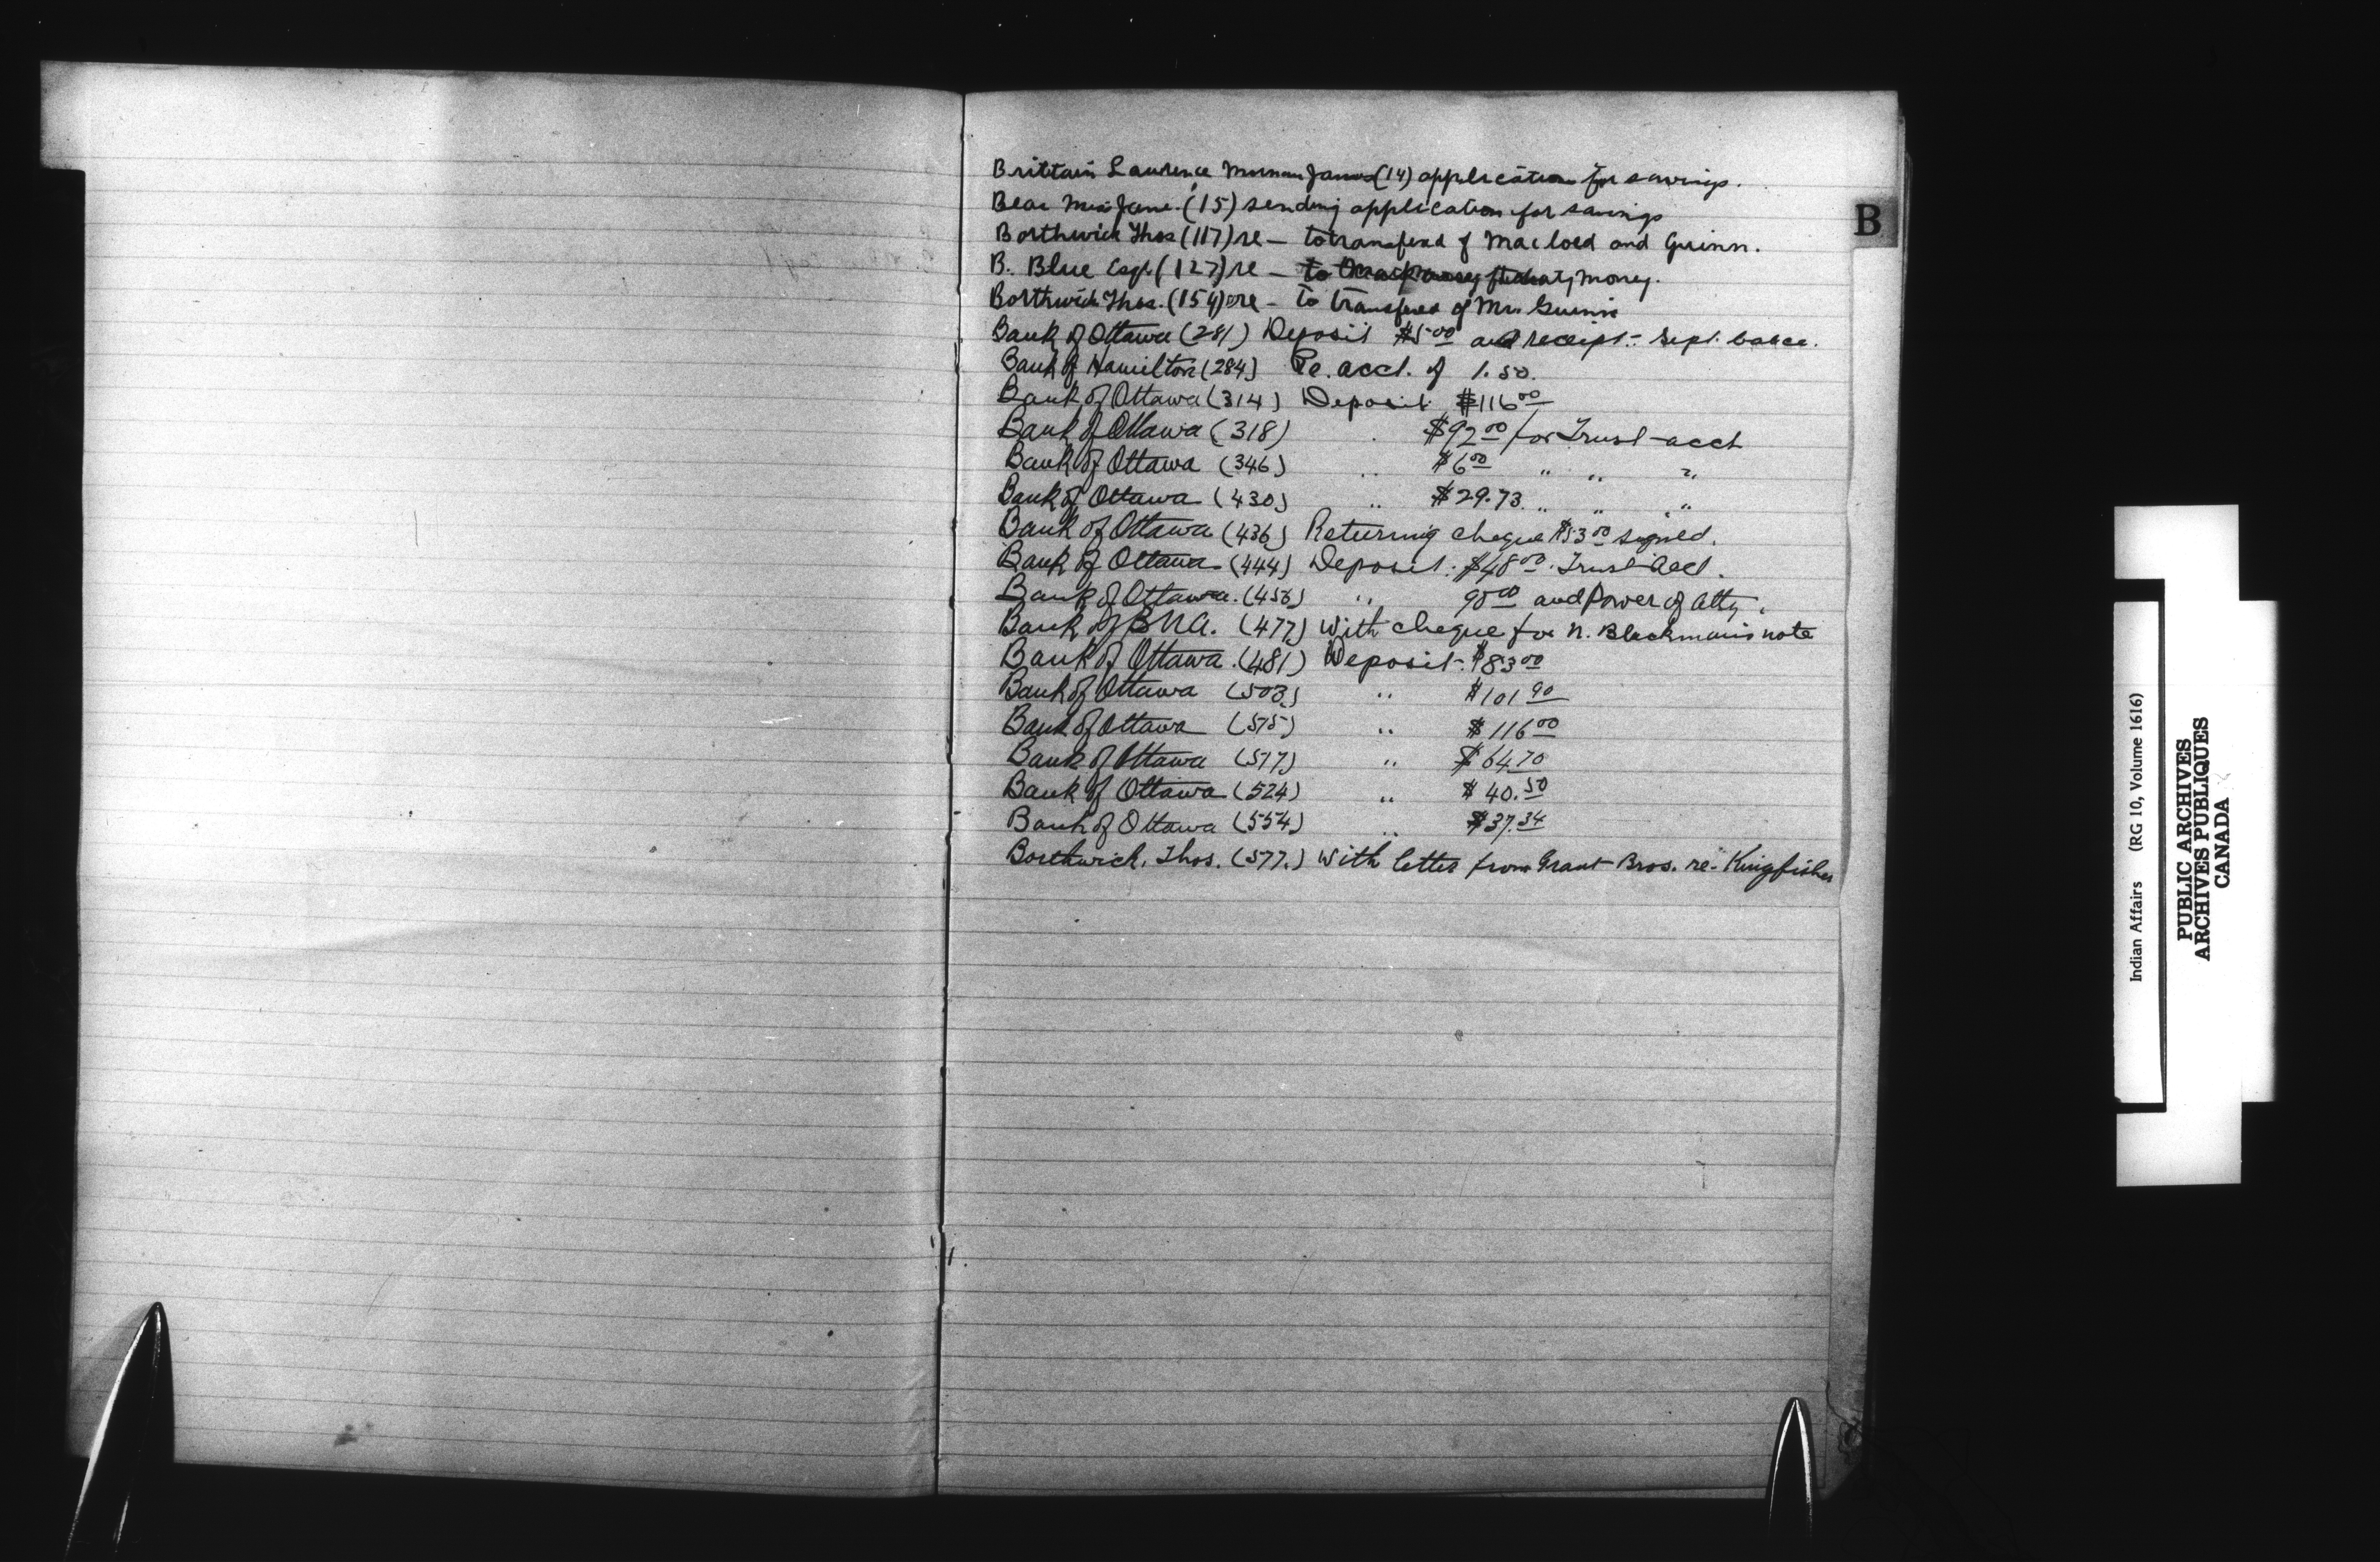 Brittain Lawrence James (14) application for savings.
Bear Miss Jane. (15) sending application for savings
Borthwick Thos (117) re — to transferd of Macloed and Guinn.
B. Blue Esq. (127) re — to money.
Borthwick Thos. (154) re - to transfered of Mr. Guinn
Bank of Ottawa (281) Deposit $5.00 and receipt - Sept.
Bank of Hamilton (284) Re. acct. of 1.50.
Bank of Ottawa (314) Deposit $116 00
Bank of Ottawa (318) " $92 00 for Trust acct
Bank of Ottawa (346) " $6 00 " " "
Bank of Ottawa (430) " $29.73 " " "
Bank of Ottawa (436) Returning cheque $53 00 signed.
Bank of Ottawa (444) Deposit: $48 00. Trust Acct.
Bank of Ottawa. " 00 and Power of Atty.
Bank of B.N.A. (477) With cheque for N. Blackman's note
Bank of Ottawa. (481) Deposit - $83 00
Bank of Ottawa (503) " $101 90
Bank of Ottawa (515) " $116 00
Bank of Ottawa (517) " $64.70
Bank of Ottawa (524) " $40.50
Bank of Ottawa (554) " $37.34
Borthwick, Thos. (577.) With letter from Grant Bros. re - Kingfisher
B
Indian Affairs (RG 10, Volume 1616)
PUBLIC ARCHIVES
ARCHIVES PUBLIQUES
CANADA